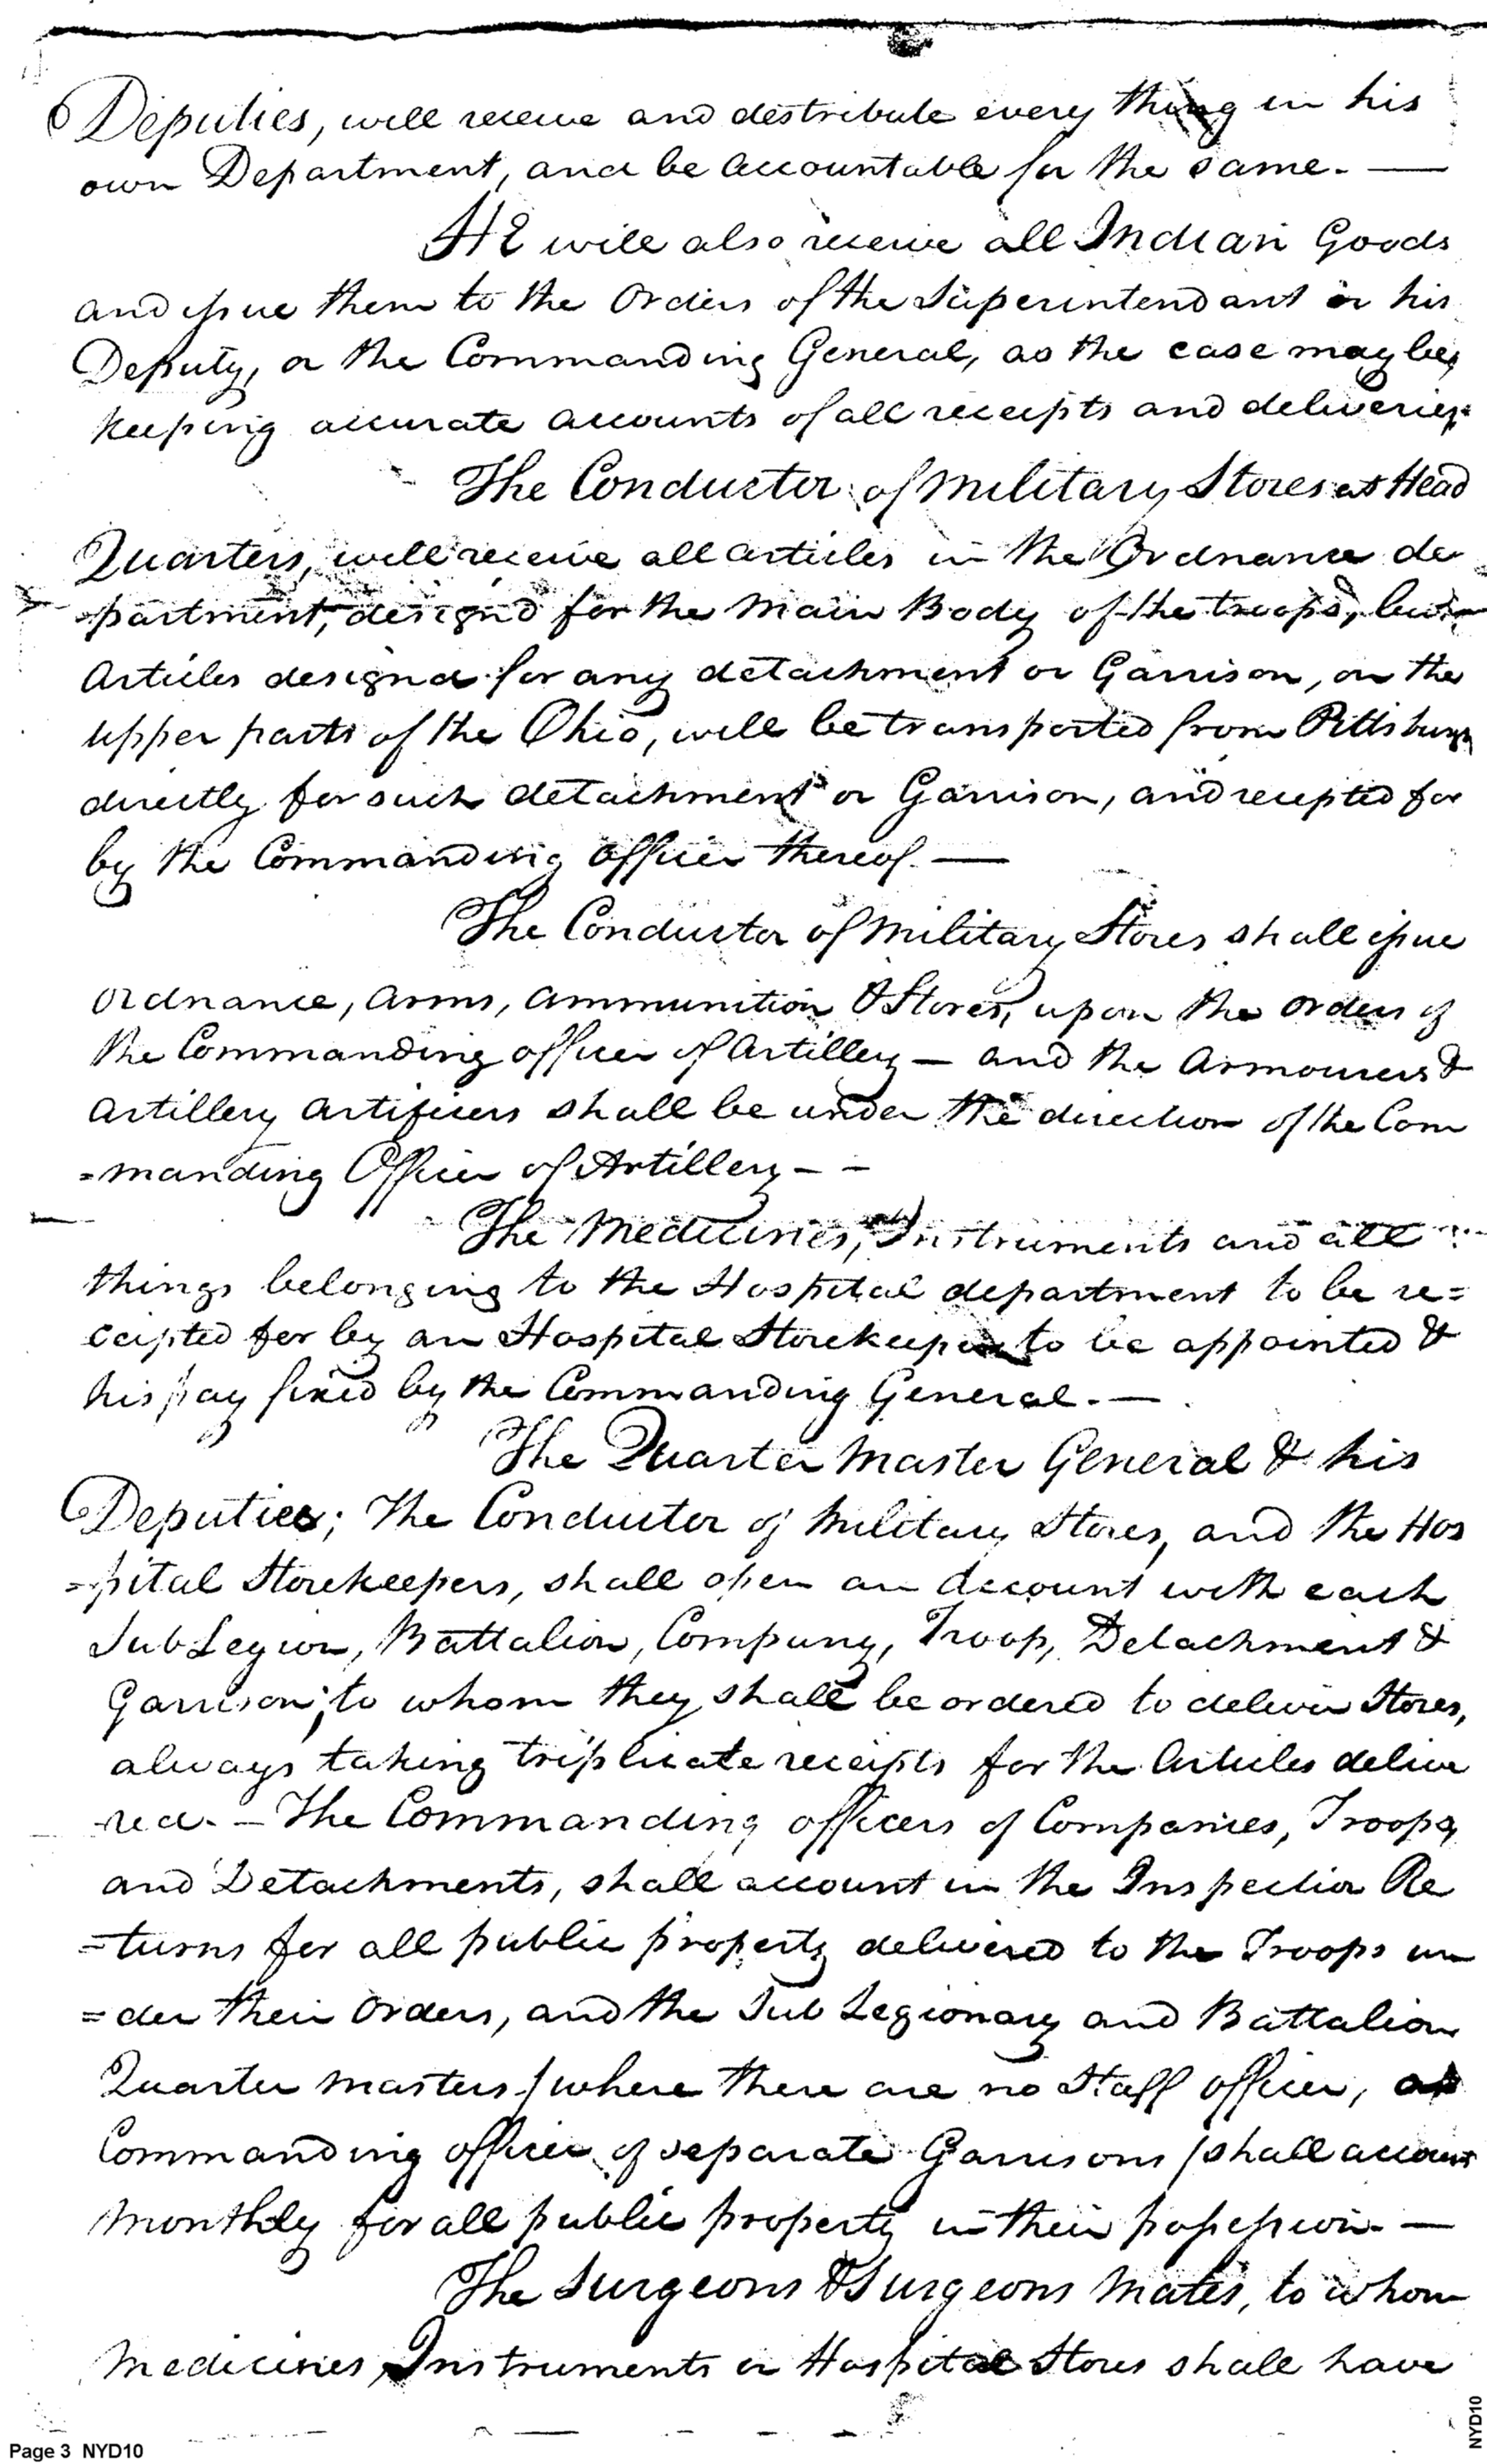 Deputies, will receive and destribute every thing in his
own Department, and be accountable for the same. —
He will also receive all Indian Goods
and issue them to the Orders of the Superintendant or his
Deputy, or the Commanding General, as the case may be,
keeping accurate accounts of all receipts and deliveries.
The Conductor of Military Stores at Head
Quarters, will receive all articles in the Ordnance de
=partment, design'd for the Main Body of the troops, but
Articles designd for any detachment or Garrison, on the
upper parts of the Ohio, will be transported from Pittsburgh
directly for such detachment or Garrison, and recepted for
by the Commanding Officer thereof. —
The Conductor of Military Stores shall issue
Ordnance, Arms, Ammunition & Stores, upon the orders of
the Commanding officer of Artillery — and the Armourers &
Artillery Artificers shall be under the direction of the Com
=manding Officer of Artillery — —
The Medicines, Instruments and all
things belonging to the Hospital department to be re=
ceipted for by an Hospital Storekeeper to be appointed &
his pay fixed by the Commanding General. —
The Quarter Master General & his
Deputies; The Conductor of Military Stores, and the Hos
=pital Storekeepers, shall open an Account with each
Sub Legion, Battalion, Company, Troop, Detachment &
Garrison; to whom they shall be ordered to deliver Stores,
always taking triplicate receipts for the Articles delive
red. — The Commanding officers of Companies, Troops,
and Detachments, shall account in the Inspection Re
=turns for all public property delivered to the Troops un
=der their Orders, and the Sub Legionary and Battalion
Quarter masters / where there are no Staff officer, as
Commanding officer of separate Garrisons / shall account
Monthly for all public property in their possession. —
The Surgeons & Surgeons Mates, to whom
Medicines, Instruments or Hospital Stores shall have
Page 3 NYD10
NYD10